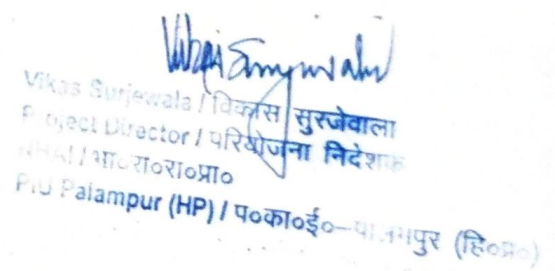 Vikas Surjewala
Vikas Surjewala / विकास सुरजेवाला
Project Director / परियोजना निदेशक
NHAI / भा०रा०रा०प्रा०
PIU Palampur (HP) / प०का०ई०–पालमपुर (हि०प्र०)